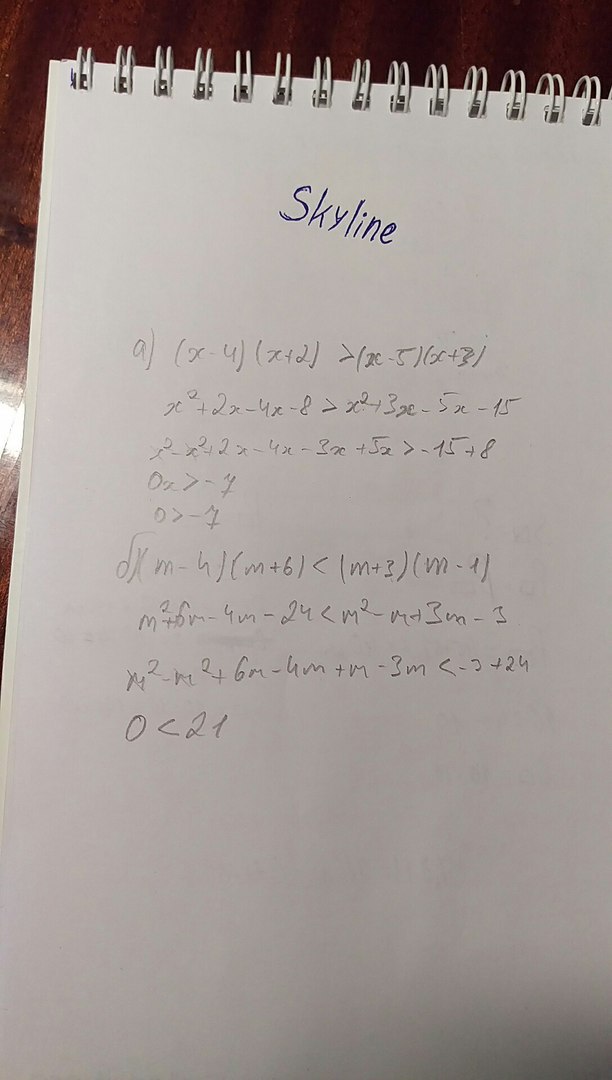 Skyline
а) (x-4)(x+2) >(x-5)(x+3)
x²+2x-4x-8>x²+3x-5x-15
x²-x²+2x-4x-3x+5x>-15+8
0x>-7
0>-7
б)(m-4)(m+6)<(m+3)(m-1)
m²+6m-4m-24<m²-m+3m-3
m²-m²+6m-4m+m-3m<-3+24
0<21